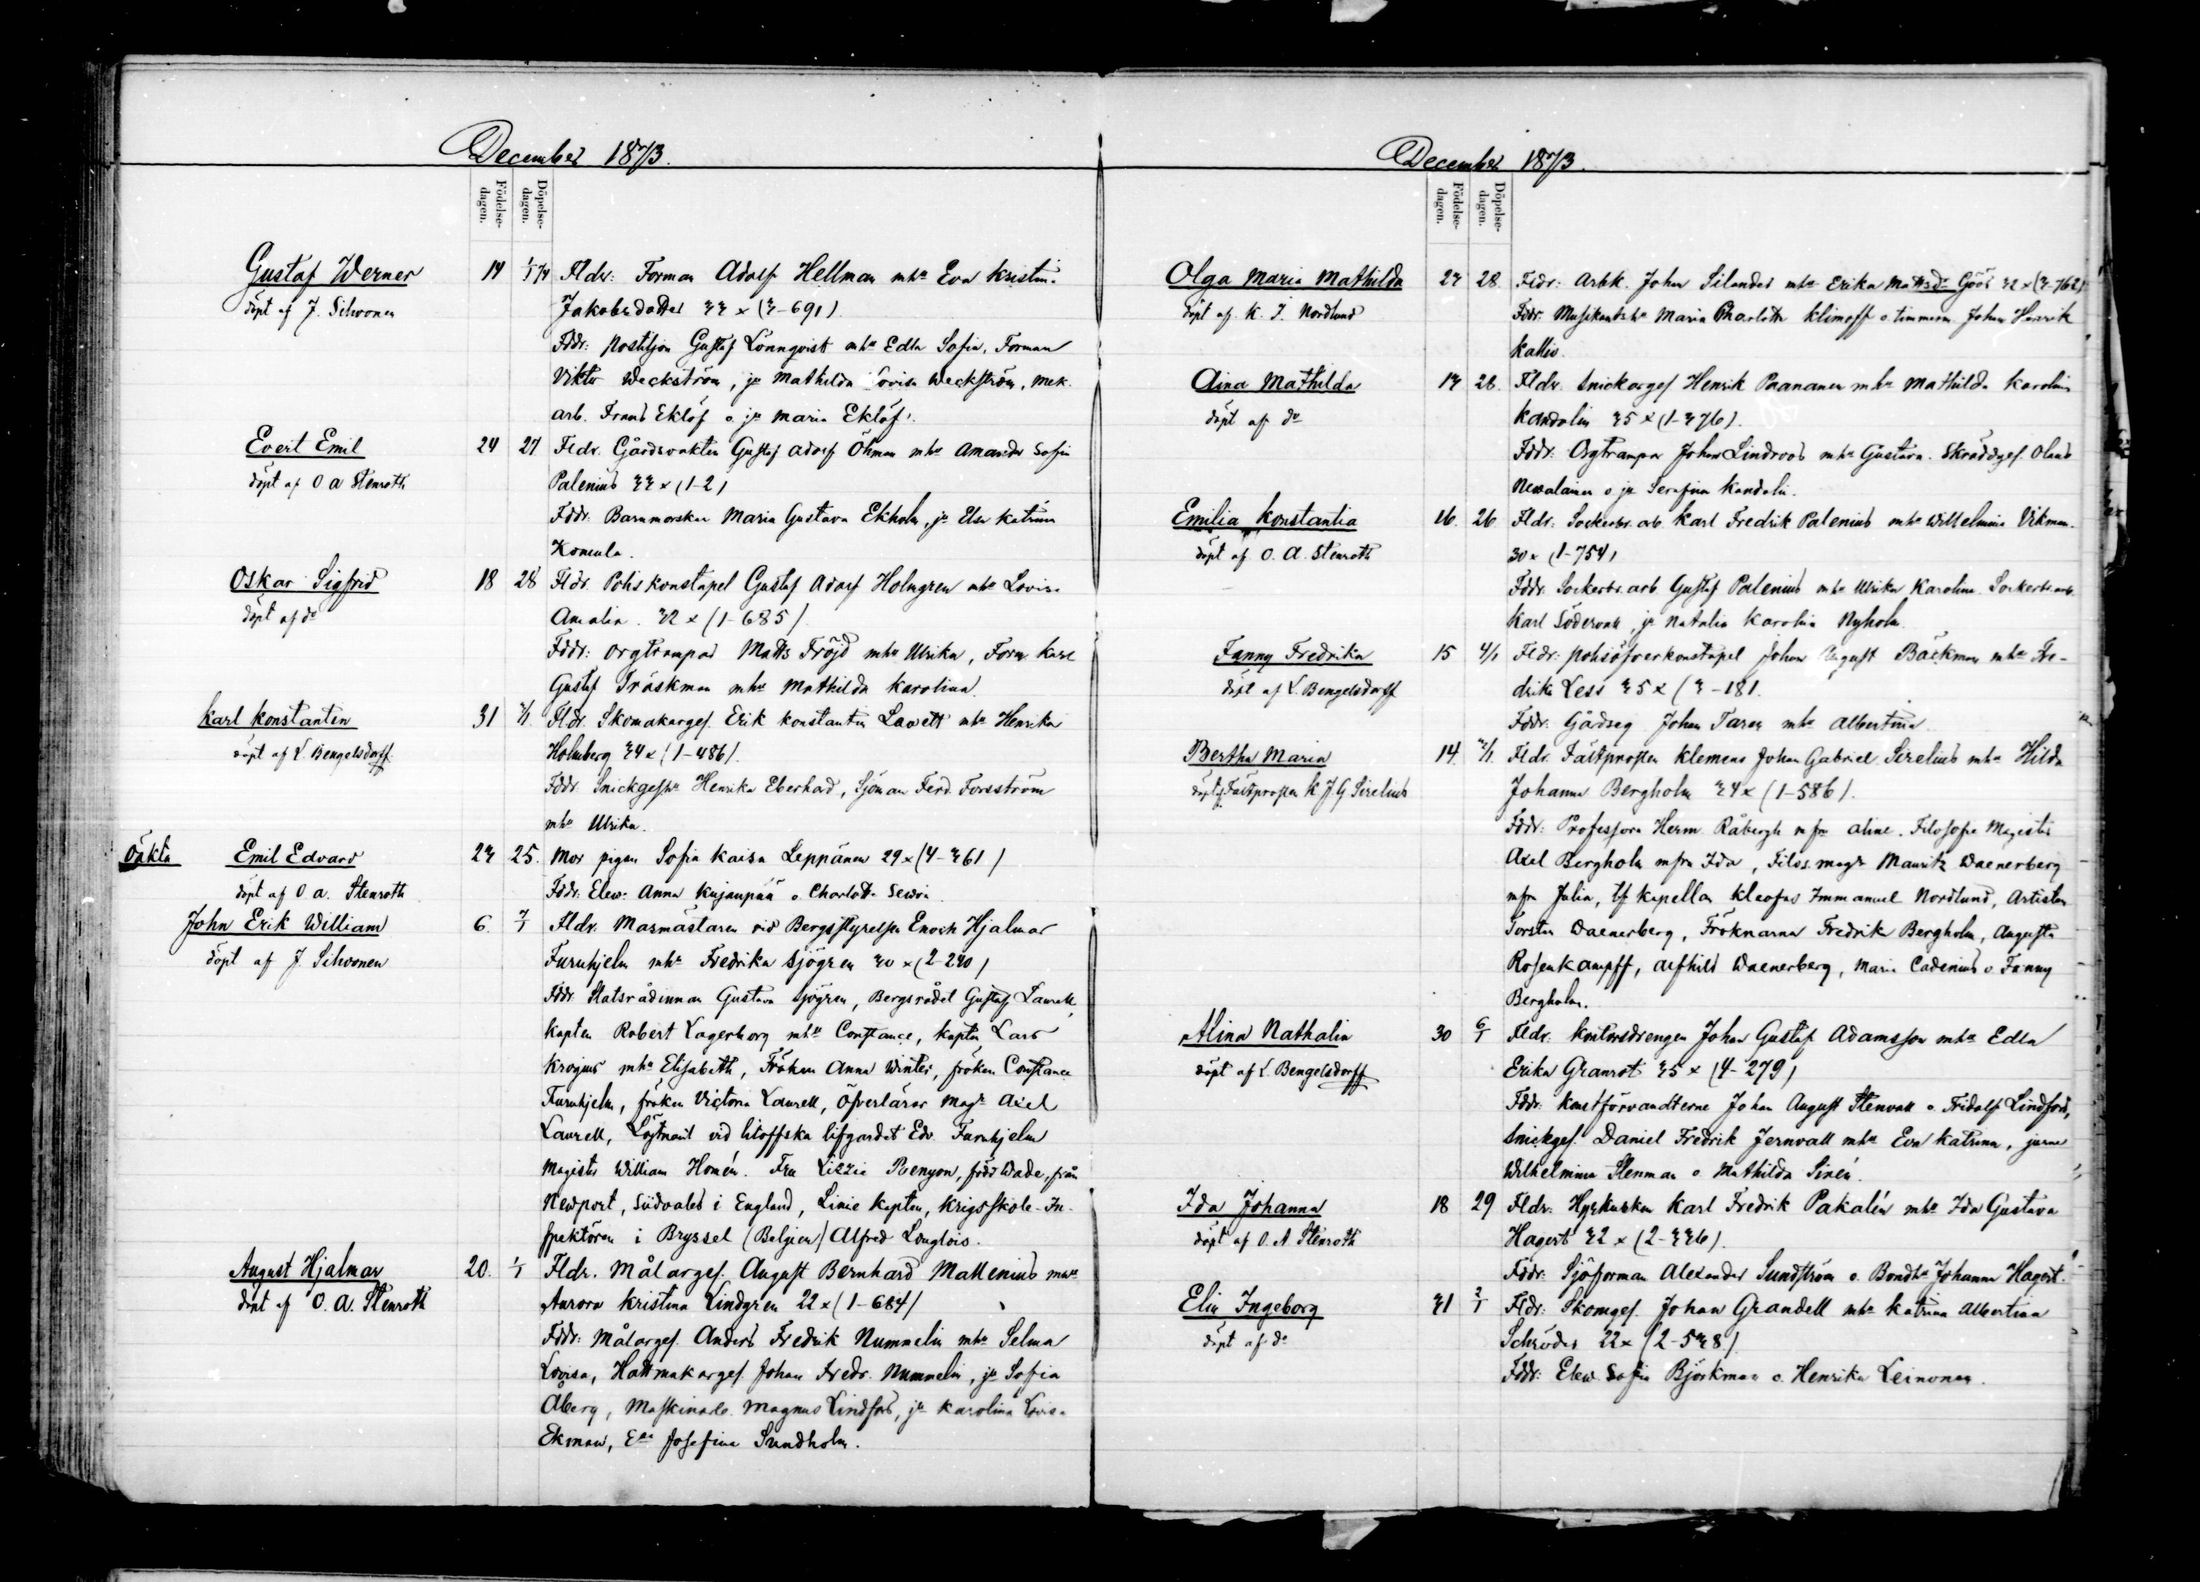 December 1873.
Födelse-
dagen.
Döpelse-
dagen.
Gustaf Werner
döpt af J. Sihvonen
14 1/1 74 Fldr: Forman Adolf Hellman mhu Eva Kristin.
Jakobsdotter
Fddr: postiljon Gustaf Lönnqvist mhu Edla Sofia, Forman
Viktor Weckström, jn Mathilda Lovisa Weckström, mek.
arb. Frans Eklöf o jn Maria Eklöf.
Evert Emil
döpt af O A Stenroth
24 27 Fldr. Gårdsvakten Gustaf Adolf Öhman mhu Amanda Sofia
Palenius 33 x (1-2)
Fddr: Barnmorskan Maria Gustava Ekholm, jn Elsa Katrina
Komula.
Oskar Sigfrid
döpt af do
18 28 Fldr. Poliskonstapel Gustaf Adolf Holmgren mhu Lovisa
Amalia. 32 x (1-685)
Fddr: Orgtrampar Matts Fröjd mhu Ulrika, Form Karl
Gustaf Träskman mhu Mathilda Karolina.
Karl Konstantin
döpt af L. Bengelsdorff
31 Fldr. Skomakargef. Erik Konstantin Lawett mhu Henrika
Holmberg 34 x (1-486).
Fddr. Snickgefhu Henrika Eberhard, Sjöman Ferd. Forsström
mhu Ulrika.
Oäkta Emil Edvard
döpt af O A. Stenroth
23 25. Mor pigan Sofia Kaisa Leppänen 29 x (4-361)
Fddr. Elew. Anna Kujanpää o Charlotta
John Erik William
döpt af J. Sihvonen
6. 7/1 Fldr. Masmästaren vid Bergsstyrelsen Enoch Hjalmar
Furuhjelm mhu Fredrika Sjögren 30 x (2-290)
Fddr. Statsrådinnan Gustava Sjögren, Bergsrådet Gustaf Laurell,
kapten Robert Lagerborg mhu Constance, kapten Lars
Krogius mhu Elisabeth, Fröken Anna Winter, fröken Constance
Furuhjelm, fröken Victoria Laurell, Öfverlärar magr Axel
Laurell, Löjtnant vid litoffska lifgardet Edv. Furuhjelm
Magister William Homén. Fru Lizzie Renyon, född Wade, från
Newport, Südvales i England, Linie kapten, Krigsskole-In-
spektören i Bryssel (Belgien) Alfred Langlois.
August Hjalmar
döpt af O. A. Stenroth
20. 1/1 Fldr. Målargef. August Bernhard Mallenius mhu
Aurora Kristina Lindgren 22 x (1-684)
Fddr: Målargef. Anders Fredrik Nummelin mhu Selma
Lovisa, Hattmakargef. Johan Fredr. Nummelin, jn Sofia
Åberg, Maskinarb. Magnus Lindfors, jn Karolina Lovisa
Ekman, Josefina Sundholm.
December 1873.
Födelse-
dagen.
Döpelse-
dagen.
Olga Maria Mathilda
döpt af K. I. Nordlund
27 28 Fldr: Arbk. Johan Silander mhu Erika Mattsdr Göös 32 x (3-762)
Fddr. Musikantshu Maria Charlotta Klimoff o timmerm. Johan Henrik
Kallio.
Aina Mathilda
döpt af do
17 28. Fldr. Snickargef Henrik Paananen mhu Mathilda Karolin
Kandolin 35 x (1-376).
Fddr. Orgtrampar Johan Lindroos mhu Gustava. Skräddgef. Olaus
o jn Serafina Kandolin.
Emilia Konstantia
döpt af O. A. Stenroth
16. 26 Fldr: Sockerbr.arb. Karl Fredrik Palenius mhu Wilhelmina Vikman.
30 x (1-754)
Fddr. Sockerbr.arb Gustaf Palenius mhu Ulrika Karolina. Sockerbr.arb.
Karl Södervall, jn Natalia Karolin Nyholm.
Fanny Fredrika
döpt af L. Bengelsdorff
15 4/1 Fldr: polisöfverkonstapel Johan August Bäckman mhu Fre-
drika Less 35 x (3-181.
Fddr. Gårdseg Johan Taren mhu Albertina.
Bertha Maria
döpt af Fältprosten K J G Sirelius
14. Fldr. Fältprosten Klemens Johan Gabriel Sirelius mhu Hilda
Johanna Bergholm 34 x (1-586).
Fddr: Professorn Herm. Råbergh mfru Aline, Filosofie Magister
Axel Bergholm mfru Ida, Filos. magr Mauritz Waenerberg
mfru Julia, tf kapellan Kleofas Immanuel Nordlund, Artisten
Torsten Waenerberg, Fröknarna Fredrika Bergholm, Augusta
Rosenkampff, Alfhild Waenerberg, Maria Cadenius o Fanny
Bergholm.
Alina Nathalia
döpt af L. Bengelsdorff
30 6/1 Fldr. kontorsdrengen Johan Gustaf Adamsson mhu Edla
Erika Granrot 35 x (4-279)
Fddr: konstförvandterne Johan August Stenvall o Fridolf Lindfors,
Snickgef. Daniel Fredrik Jernvall mhu Eva Katrina, jnrne
Wilhelmina Stenman o Mathilda Sirén.
Ida Johanna
döpt af O. A Stenroth
18 29 Fldr. Hyrkusken Karl Fredrik Pakalén mhu Ida Gustava
Hagert 32 x (2-336).
Fddr: Sjöforman Alexander Sundström o. Bondhu Johanna Hagert.
Elin Ingeborg
döpt af do
31 2/1 Fldr: Skomgef. Johan Grandell mhu Katrina Albertina
Schröder 22 x (2-538).
Fddr: Elew. Sofia Björkman o. Henrika Leinonen.